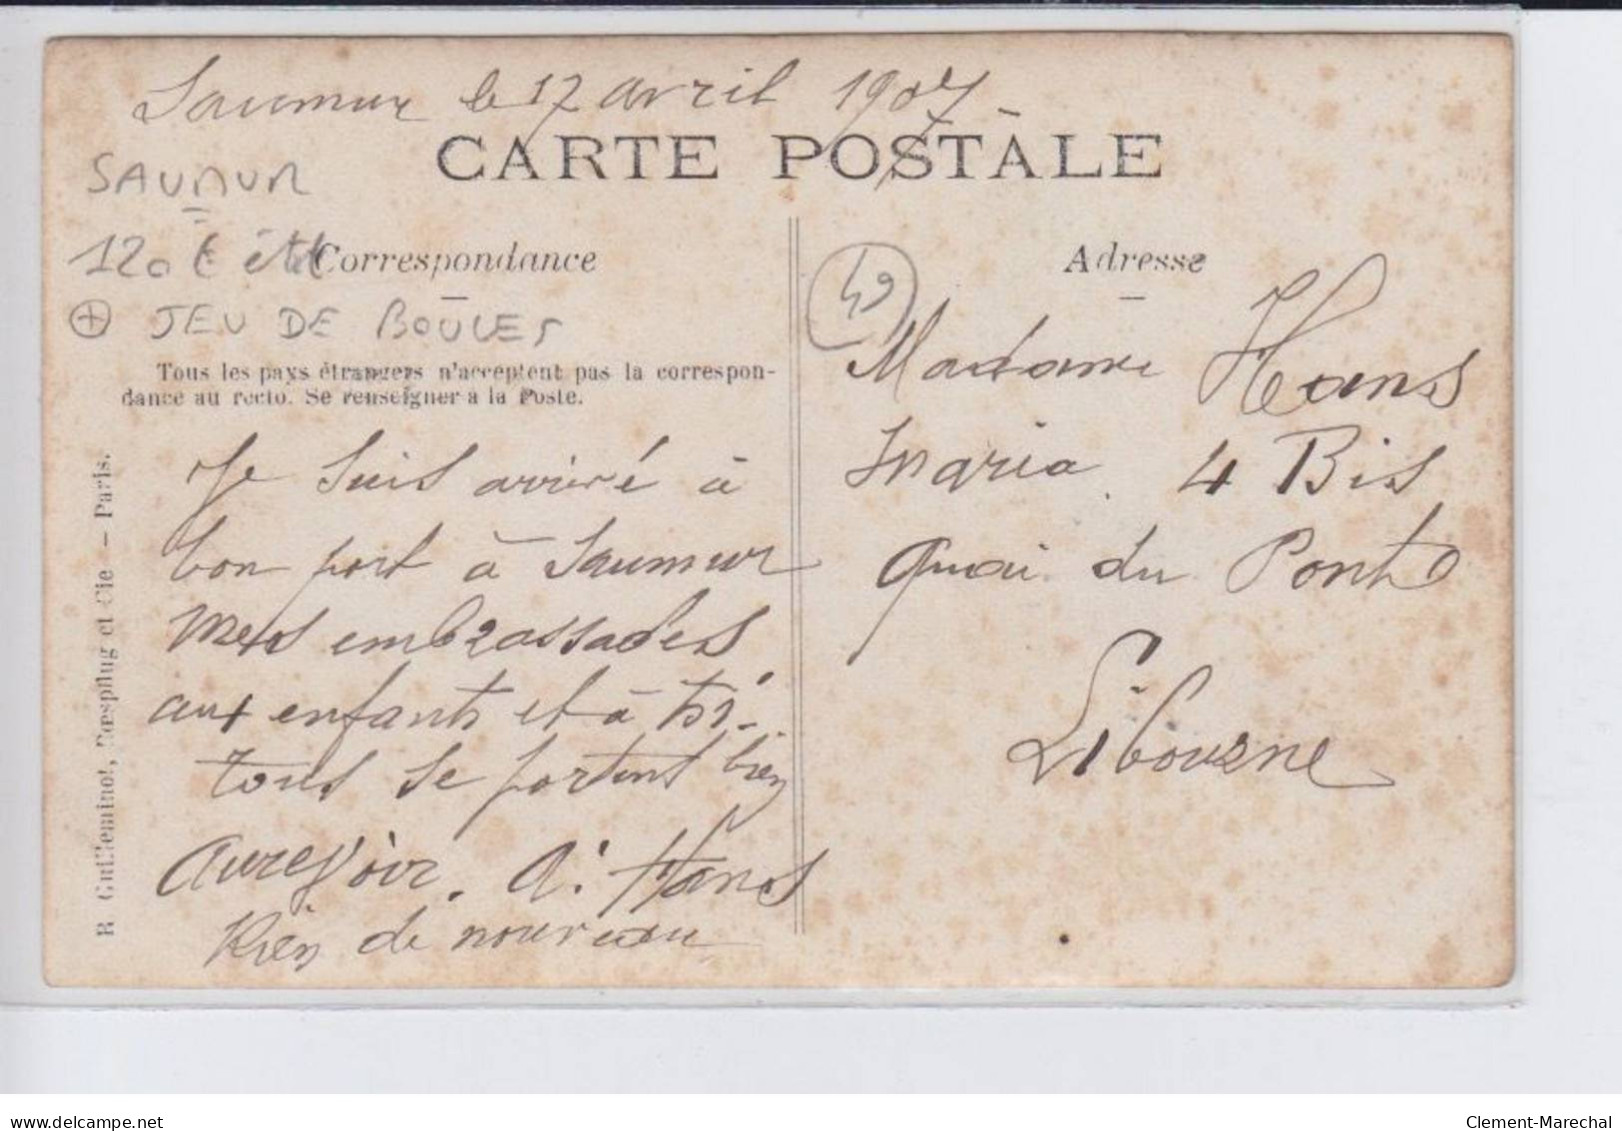 Saumur le 17 avril 1907
CARTE POSTALE
SAUMUR
120 €
Correspondance
+ JEU DE BOULES
Tous les pays étrangers n'acceptent pas la correspon-
dance au recto. Se renseigner à la Poste.
R. Guilleminot, Bœspflug et Cie — Paris.
Je suis arrivé à
bon port à Saumur
Mes embrassades
aux enfants et à toi.
tous se portent bien
Aurevoir. A. Hans
Rien de nouveau
49
Adresse
Madame Hans
Maria. 4 Bis
Quai du Pont
Libourne
delcampe.net
Clement-Marechal